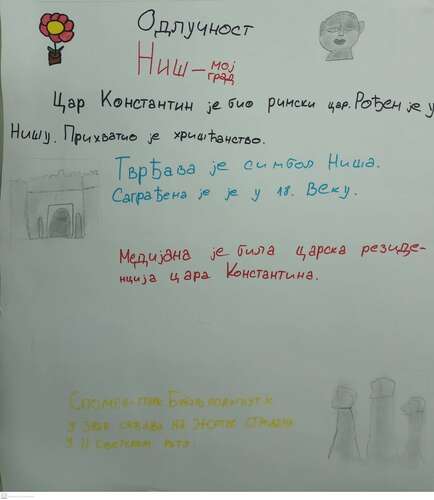 Одлучност
Ниш – мој
град
Цар Константин је био рински цар. Рођен је у
Нишу. Прихватио је хришћанство.
Тврђава је симбол Ниша.
Саграђена је је у 18. веку.
Медијана је била царска резиде-
нција цара Константина.
Спомен парк Бубањ подигнут је
у знак сећања на жртве страдале
у II светском рату.